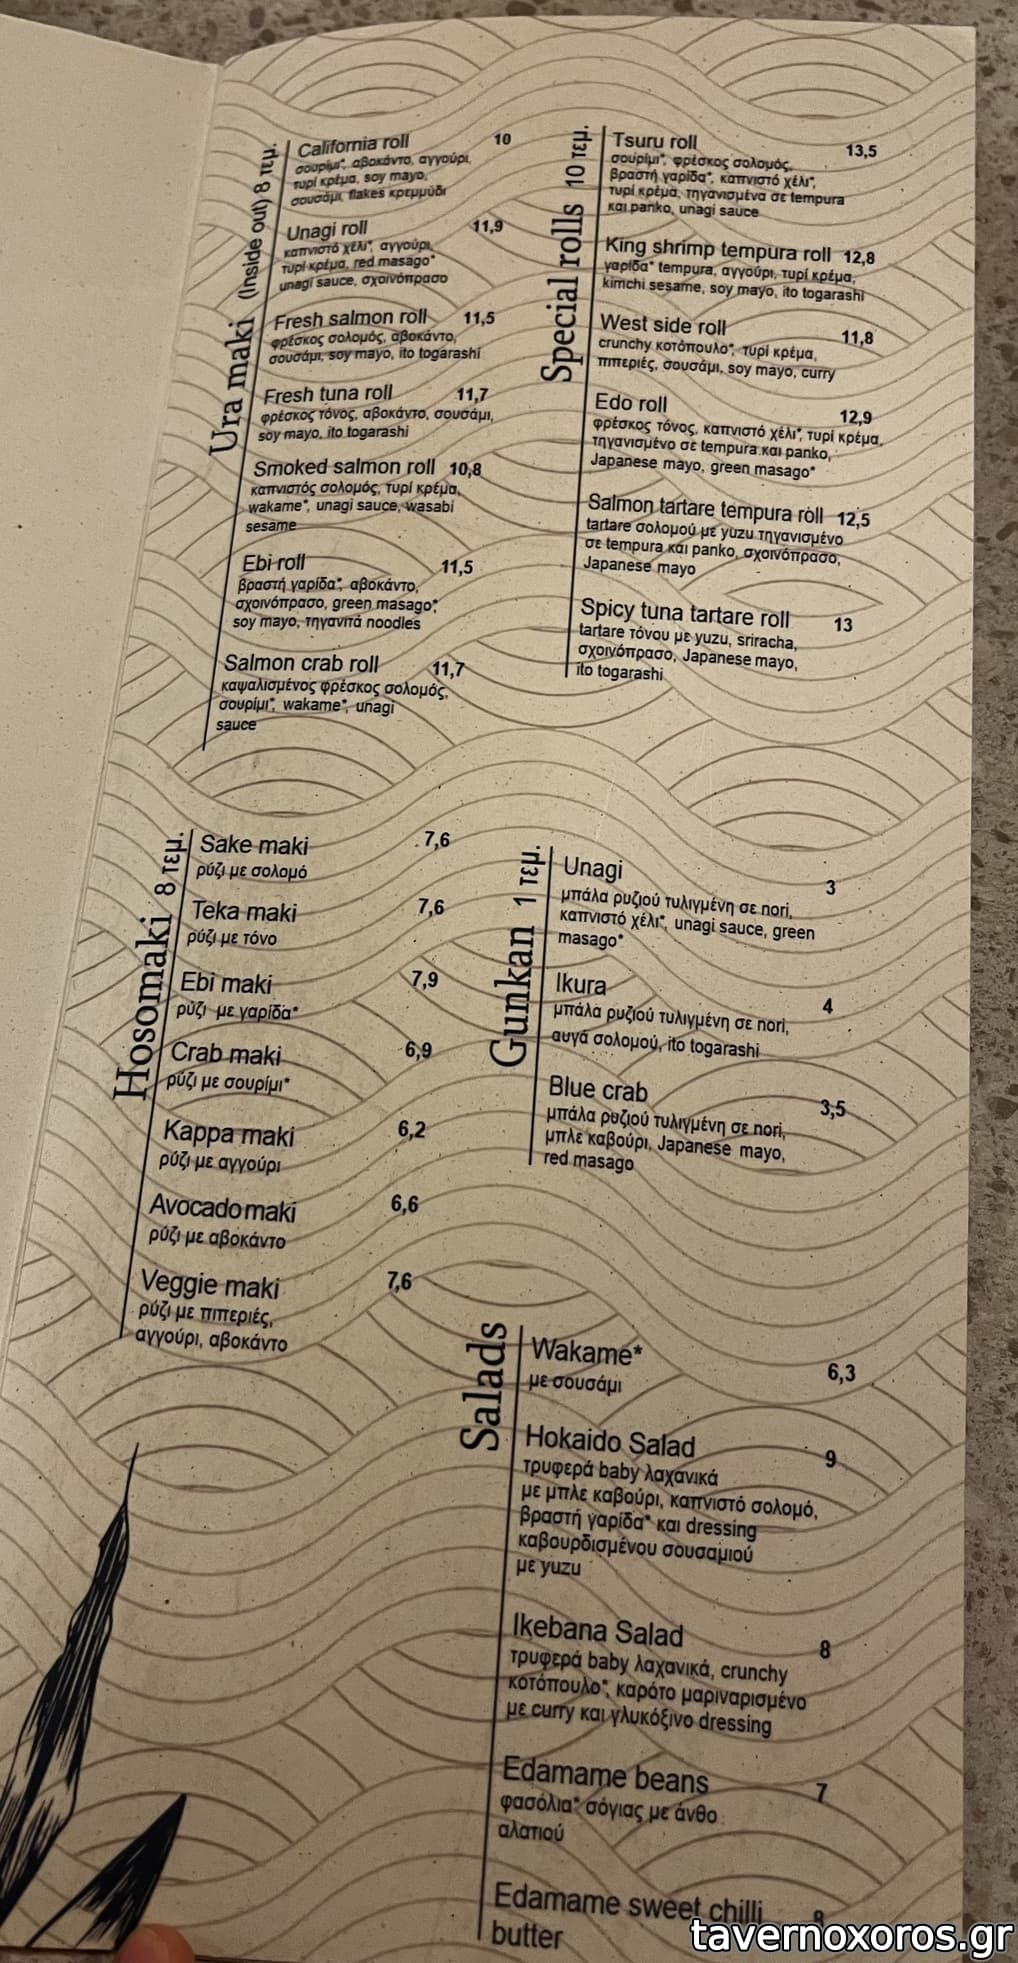 Ura maki (Inside out) 8 τεμ.
California roll 10
σουρίμι*, αβοκάντο, αγγούρι,
τυρί κρέμα, soy mayo,
σουσάμι, flakes κρεμμύδι
Unagi roll 11,9
καπνιστό χέλι*, αγγούρι,
τυρί κρέμα, red masago*
unagi sauce, σχοινόπρασο
Fresh salmon roll 11,5
φρέσκος σολομός, αβοκάντο,
σουσάμι, soy mayo, ito togarashi
Fresh tuna roll 11,7
φρέσκος τόνος, αβοκάντο, σουσάμι,
soy mayo, ito togarashi
Smoked salmon roll 10,8
καπνιστός σολομός, τυρί κρέμα,
wakame*, unagi sauce, wasabi
sesame
Ebi roll 11,5
βραστή γαρίδα*, αβοκάντο,
σχοινόπρασο, green masago*,
soy mayo, τηγανιτά noodles
Salmon crab roll 11,7
καψαλισμένος φρέσκος σολομός,
σουρίμι*, wakame*, unagi
sauce
Special rolls 10 τεμ.
Tsuru roll 13,5
σουρίμι*, φρέσκος σολομός,
βραστή γαρίδα*, καπνιστό χέλι*,
τυρί κρέμα, τηγανισμένα σε tempura
και panko, unagi sauce
King shrimp tempura roll 12,8
γαρίδα* tempura, αγγούρι, τυρί κρέμα,
kimchi sesame, soy mayo, ito togarashi
West side roll 11,8
crunchy κοτόπουλο*, τυρί κρέμα,
πιπεριές, σουσάμι, soy mayo, curry
Edo roll 12,9
φρέσκος τόνος, καπνιστό χέλι*, τυρί κρέμα,
τηγανισμένο σε tempura και panko,
Japanese mayo, green masago*
Salmon tartare tempura roll 12,5
tartare σολομού με yuzu τηγανισμένο
σε tempura και panko, σχοινόπρασο,
Japanese mayo
Spicy tuna tartare roll 13
tartare τόνου με yuzu, sriracha,
σχοινόπρασο, Japanese mayo,
ito togarashi
Hosomaki 8 τεμ.
Sake maki 7,6
ρύζι με σολομό
Teka maki 7,6
ρύζι με τόνο
Ebi maki 7,9
ρύζι με γαρίδα*
Crab maki 6,9
ρύζι με σουρίμι*
Kappa maki 6,2
ρύζι με αγγούρι
Avocado maki 6,6
ρύζι με αβοκάντο
Veggie maki 7,6
ρύζι με πιπεριές,
αγγούρι, αβοκάντο
Gunkan 1 τεμ.
Unagi 3
μπάλα ρυζιού τυλιγμένη σε nori,
καπνιστό χέλι*, unagi sauce, green
masago*
Ikura 4
μπάλα ρυζιού τυλιγμένη σε nori,
αυγά σολομού, ito togarashi
Blue crab 3,5
μπάλα ρυζιού τυλιγμένη σε nori,
μπλε καβούρι, Japanese mayo,
red masago
Salads
Wakame* 6,3
με σουσάμι
Hokaido Salad 9
τρυφερά baby λαχανικά
με μπλε καβούρι, καπνιστό σολομό,
βραστή γαρίδα* και dressing
καβουρδισμένου σουσαμιού
με yuzu
Ikebana Salad 8
τρυφερά baby λαχανικά, crunchy
κοτόπουλο*, καρότο μαριναρισμένο
με curry και γλυκόξινο dressing
Edamame beans 7
φασόλια* σόγιας με άνθο
αλατιού
Edamame sweet chilli 8
butter
tavernoxoros.gr